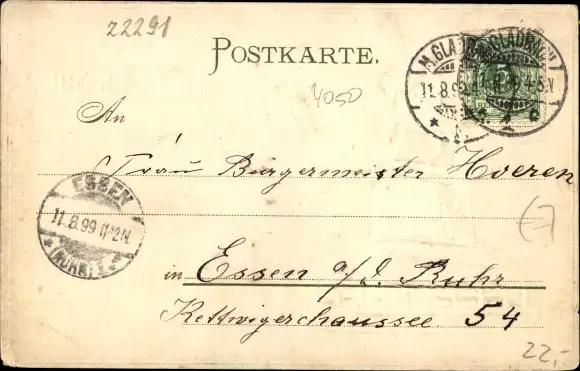 22291
POSTKARTE.
M.GLADBACH
11.8.99
4-5N
4050
An
Frau Burgermeister Hoeren
ESSEN
11.8.99 11-12N
(RUHR) 1
in Essen a/d. Ruhr
Kettwigerchaussee 54
22,-